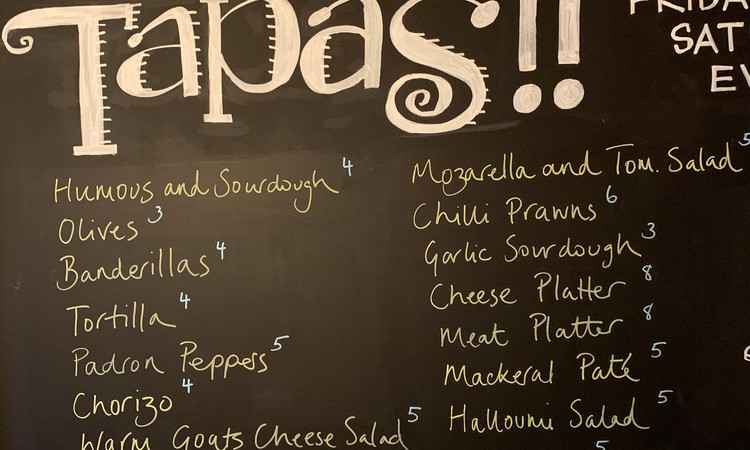 Tapas!!
FRIDA
SAT
EV
Humous and Sourdough 4
Olives 3
Banderillas 4
Tortilla 4
Padron Peppers 5
Chorizo 4
Warm Goats Cheese Salad 5
Mozarella and Tom. Salad 5
Chilli Prawns 6
Garlic Sourdough 3
Cheese Platter 8
Meat Platter 8
Mackeral Paté 5
Halloumi Salad 5
5